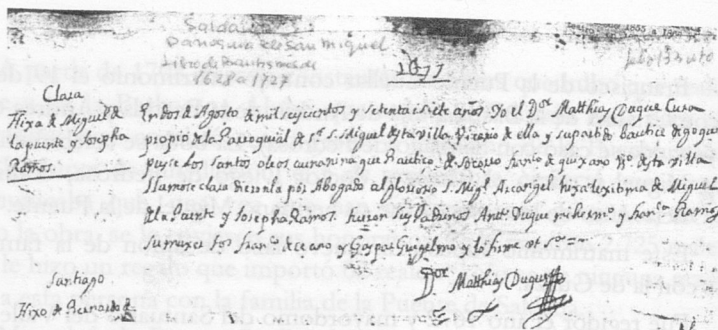 Saldaña
Parroquia de San Miguel
Libro de Bautismos de
1628 a 1728
1677
Clara
Hixa de Miguel de
la puente y Josepha
Ramos.
En dos de Agosto de mil seiscientos y setenta i siete años Yo el Dor Matthias Duque Cura
propio de la Parroquial de Sr S. Miguel desta villa Vicario de ella y su partido bautice digo que
puse los santos oleos a una niña que Bautico de socorro franco de quixano Vo de esta villa
llamose clara dieronla por Abogado al glorioso S. Migl Arcangel hixa lexitima de Miguel
de la Puente y Josepha Ramos fueron sus Padrinos Antt Duque mi hermo y franca Ramos
su muxer tos franco de cano y Gaspar Guigelmo y lo firme ut sa
Dor Matthias Duque
Santiago
Hixo de